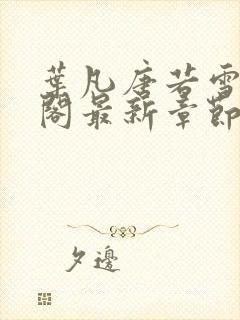 葉凡唐若雪
閣最新章節
夕邊